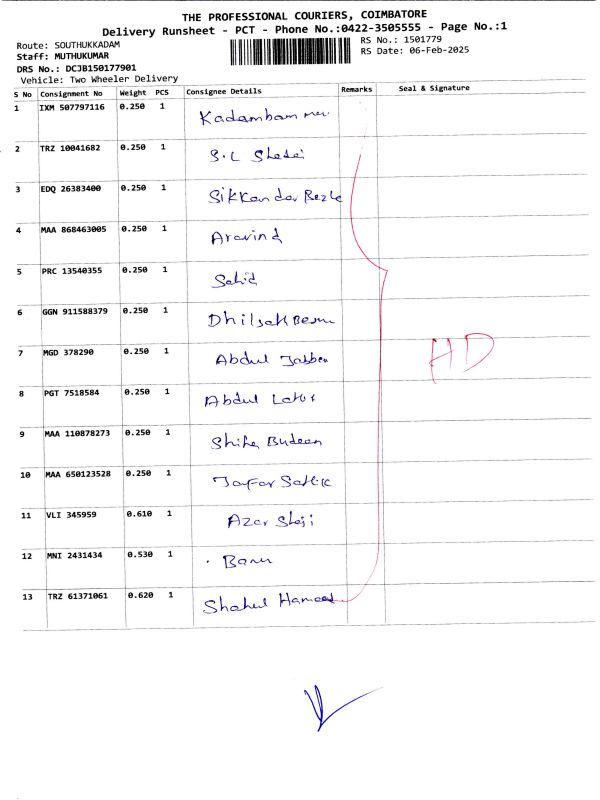 THE PROFESSIONAL COURIERS, COIMBATORE
Delivery Runsheet - PCT - Phone No.:0422-3505555 - Page No.:1
Route: SOUTHUKKADAM
RS No.: 1501779
Staff: MUTHUKUMAR
RS Date: 06-Feb-2025
DRS No.: DCJB150177901
Vehicle: Two Wheeler Delivery
S No Consignment No Weight PCS Consignee Details Remarks Seal & Signature
1 IXM 507797116 0.250 1 Kadambam
2 TRZ 10041682 0.250 1 S.L
3 EDQ 26383400 0.250 1 Sikkandar
4 MAA 868463005 0.250 1 Aravind
5 PRC 13540355 0.250 1 Sahid
6 GGN 911588379 0.250 1
7 MGD 378290 0.250 1 Abdul
8 PGT 7518584 0.250 1 Abdul
9 MAA 110878273 0.250 1
10 MAA 650123528 0.250 1 Jafar
11 VLI 345959 0.610 1 Azar
12 MNI 2431434 0.530 1 Banu
13 TRZ 61371061 0.620 1 Shahul Hameed
HD